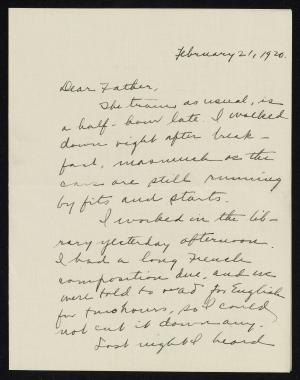 February 21, 1920.
Dear Father,
The train, as usual, is
a half-hour late. I walked
down right after break-
fast, inasmuch as the
cars are still running
by fits and starts.
I worked in the lib-
rary yesterday afternoon.
I had a long French
composition due, and we
were told to read for English
for two hours, so I could
not cut it down any.
Last night I heard